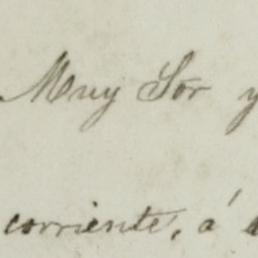 Muy Sor y
corriente, á